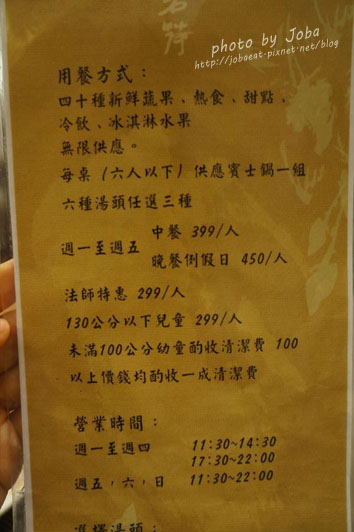 若荷
photo by Joba
http://jobaeat.pixnet.net/blog
用餐方式：
四十種新鮮蔬果、熱食、甜點、
冷飲、冰淇淋水果
無限供應。
每桌(六人以下)供應賓士鍋一組
六種湯頭任選三種
中餐 399/人
週一至週五
晚餐例假日 450/人
法師特惠 299/人
130公分以下兒童 299/人
未滿100公分幼童酌收清潔費 100
以上價錢均酌收一成清潔費
營業時間：
週一至週四 11:30~14:30
17:30~22:00
週五,六,日 11:30~22:00
選擇湯頭：